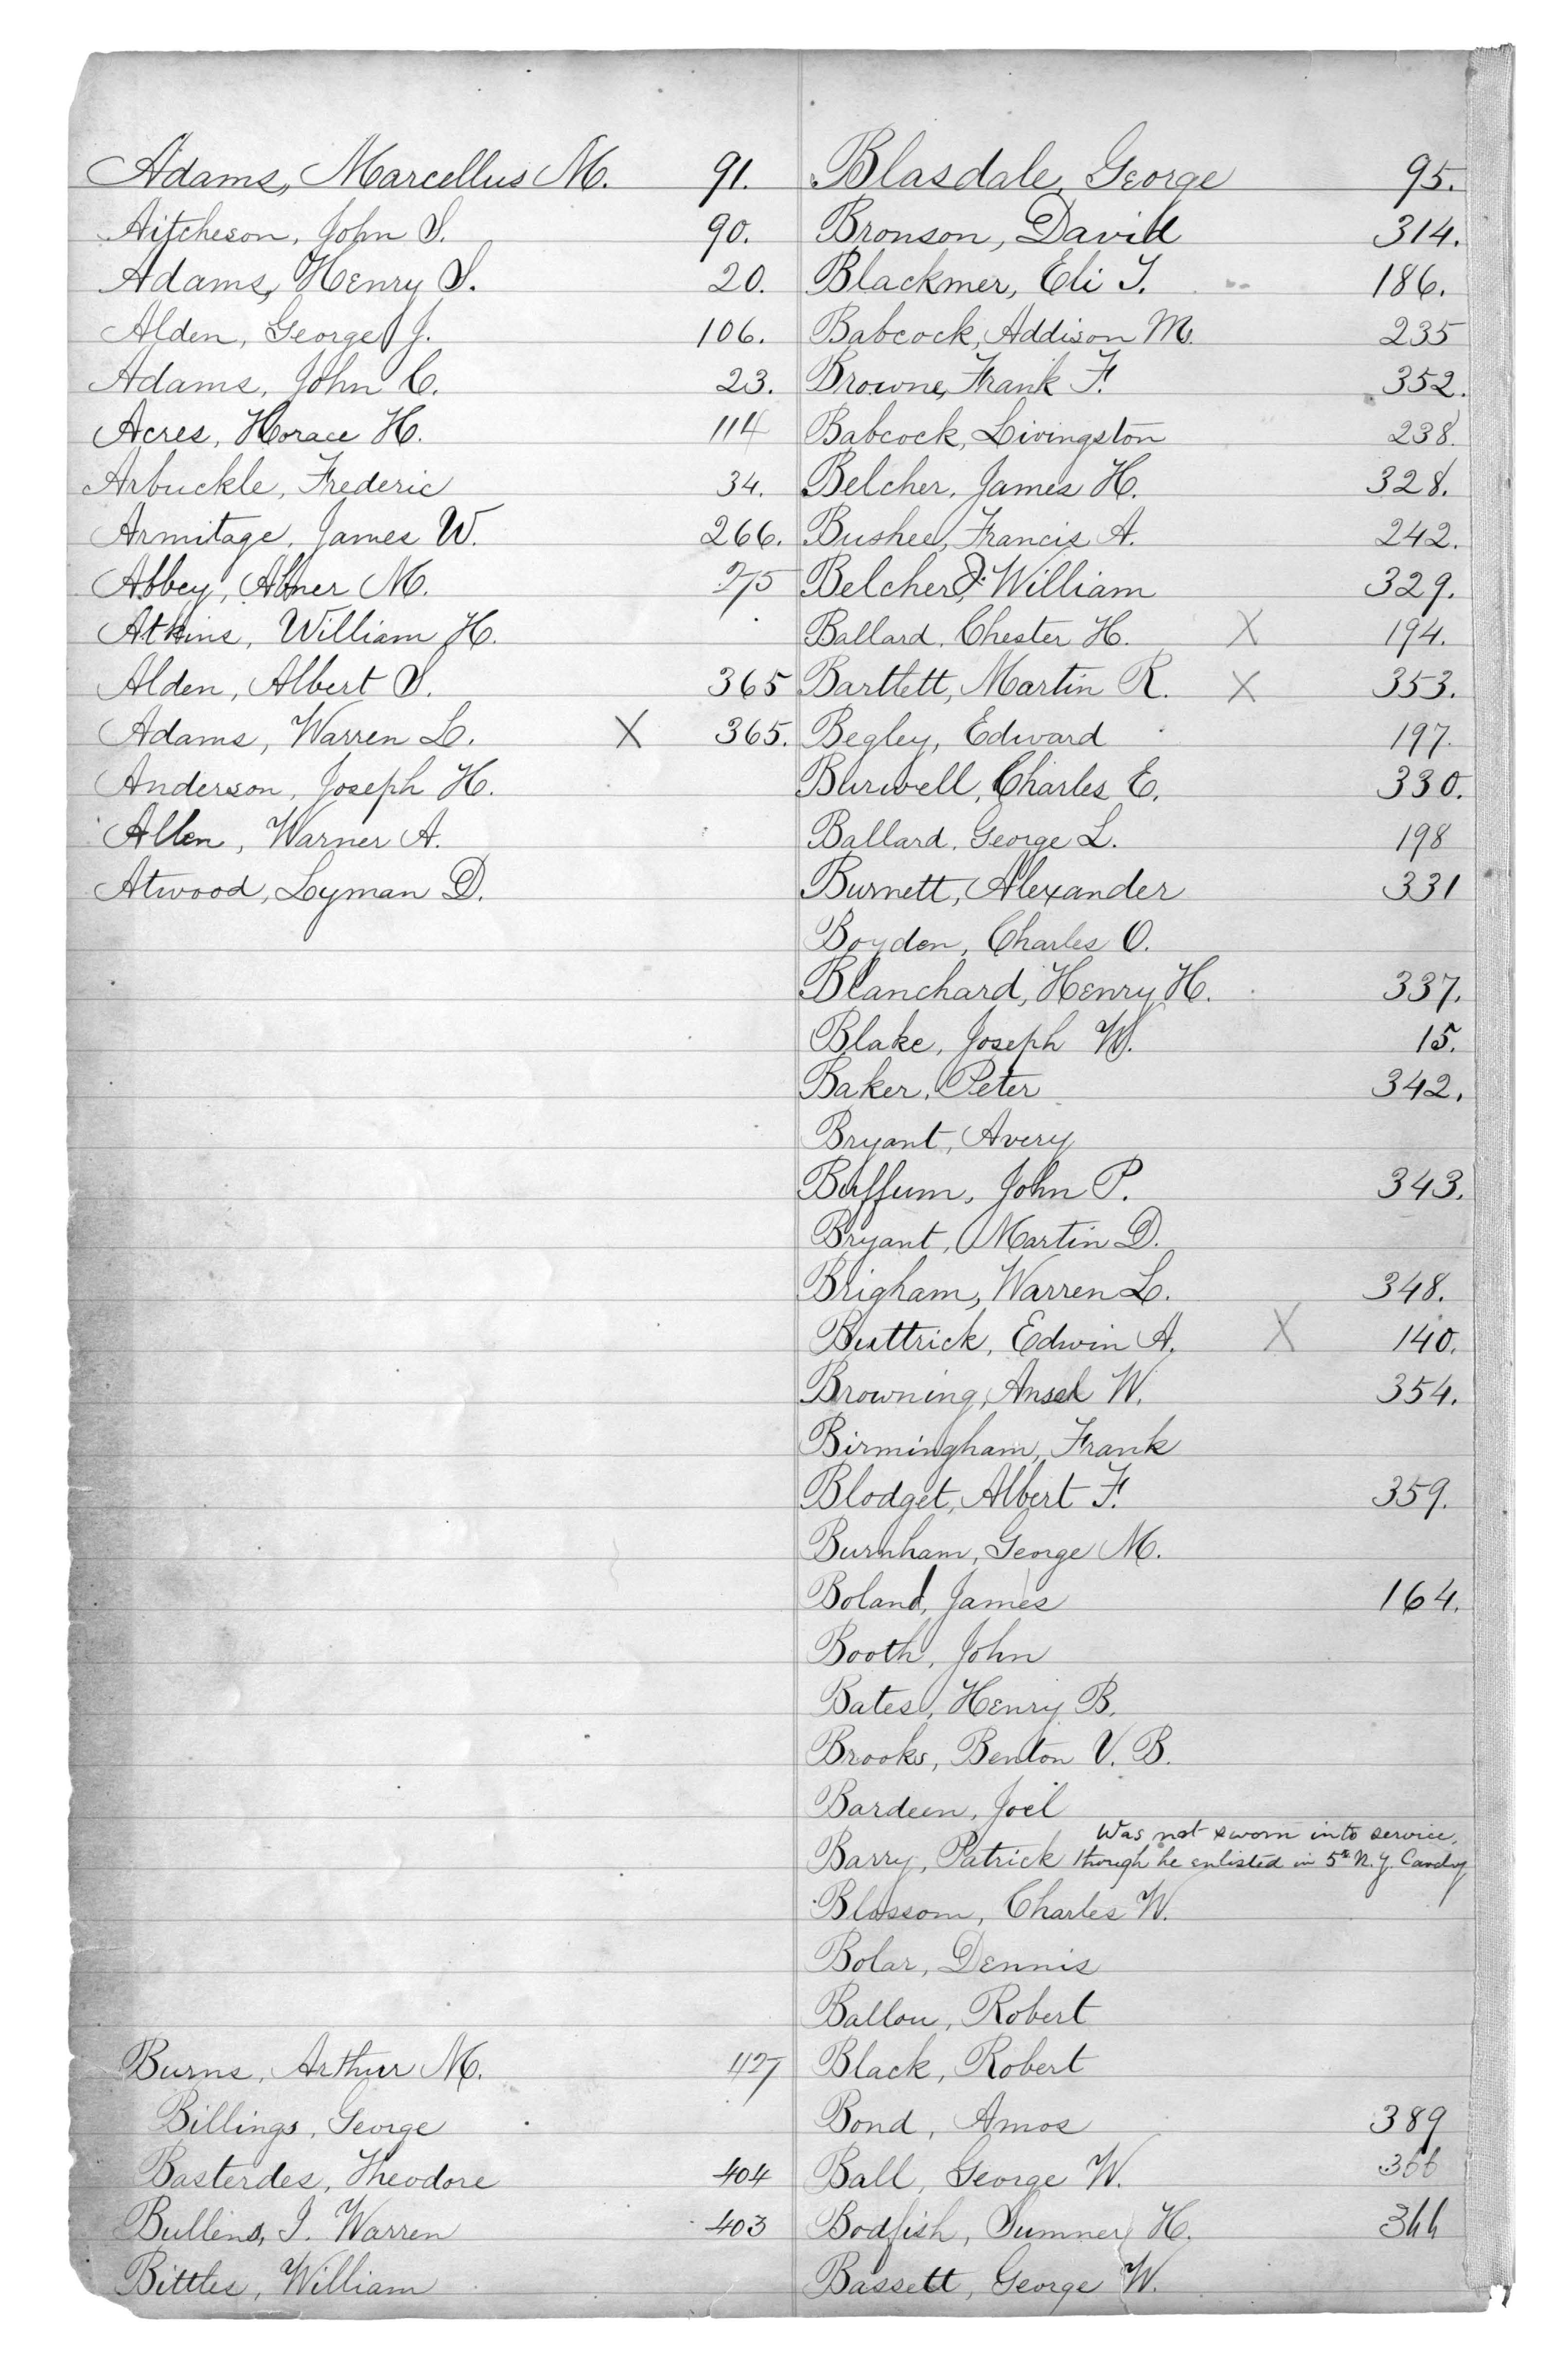 Adams, Marcellus M. 91.
Aitcheson, John S. 90.
Adams, Henry S. 20.
Alden, George J. 106.
Adams, John C. 23.
Acres, Horace H. 114
Arbuckle, Frederic 34.
Armitage, James W. 266.
Abbey, Abner M. 275
Atkins, William H.
Alden, Albert S. 365
Adams, Warren L. X 365.
Anderson, Joseph H.
Allen, Warner A.
Atwood, Lyman D.
Burns, Arthur M. 427
Billings, George
Basterdes, Theodore 404
Bullens, I. Warren 403
Bittles, William
Blasdale, George 95.
Bronson, David 314.
Blackmer, Eli T. 186.
Babcock, Addison M. 235
Browne, Frank F. 352.
Babcock, Livingston 238.
Belcher, James H. 328.
Bushee, Francis A. 242.
Belcher, J. William 329.
Ballard, Chester H. X 194.
Bartlett, Martin R. X 353.
Begley, Edward 197.
Burwell, Charles E. 330.
Ballard, George L. 198
Burnett, Alexander 331
Boyden, Charles O.
Blanchard, Henry H. 337.
Blake, Joseph W. 15.
Baker, Peter 342.
Bryant, Avery
Buffum, John P. 343.
Bryant, Martin D.
Brigham, Warren L. 348.
Buttrick, Edwin A. X 140.
Browning, Ansel W. 354.
Birmingham, Frank
Blodget, Albert F. 359.
Burnham, George M.
Boland, James 164.
Booth, John
Bates, Henry B.
Brooks, Benton V. B.
Bardeen, Joel
Was not sworn into service,
Barry, Patrick though he enlisted in 5th N.Y. Cavalry
Blossom, Charles W.
Bolar, Dennis
Ballou, Robert
Black, Robert
Bond, Amos 389
Ball, George W. 366
Bodfish, Sumner H. 366
Bassett, George W.